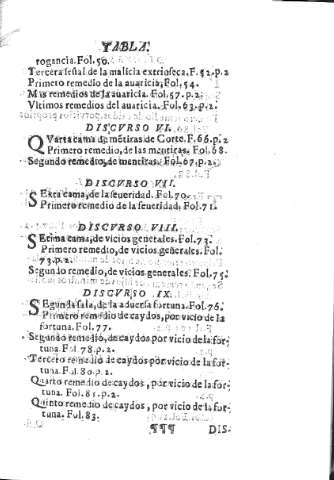 TABLA.
rogancia. Fol. 50.
Tercera señal de la malicia extrioseca. F. 52. p. 2
Primero remedio de la auaricia, Fol. 54.
Mas remedios de la auaricia. Fol. 57. p. 2.
Vltimos remedios del auaricia. Fol. 63. p. 2.
DISCVRSO VI.
QVarta cama de métiras de Corte. F. 66. p. 2
Primero remedio, de las mentiras. F. ol. 68.
Segundo remedio, de mentiras. Fol. 67. p. 2.
DISCVRSO VII.
SExta cama, de la seueridad. Fol. 70.
Primero remedio de la seueridad. Fol. 71.
DISCVRSO VIII.
SEtima cama, de vicios generales. Fol. 73.
Primero remedio, de vicios generales. Fol.
73. p. 2.
Segundo remedio, de vicios generales. Fol. 75.
DISCVRSO IX.
SEgunda sala, de la aduersa fortuna. Fol. 76.
Primero remedio de caydos, por vicio de la
fortuna. Fol. 77.
Segundo remedio, de caydos por vicio de la for-
tuna. Fol. 78. p. 2.
Tercero remedio de caydos por vicio de la for-
tuna. Fol. 80. p. 2.
Quarto remedio de caydos, por vicio de la for-
tuna. Fol. 81. p. 2.
Quinto remedio de caydos, por vicio de la for-
tuna. Fol. 83.
¶¶¶ DIS-